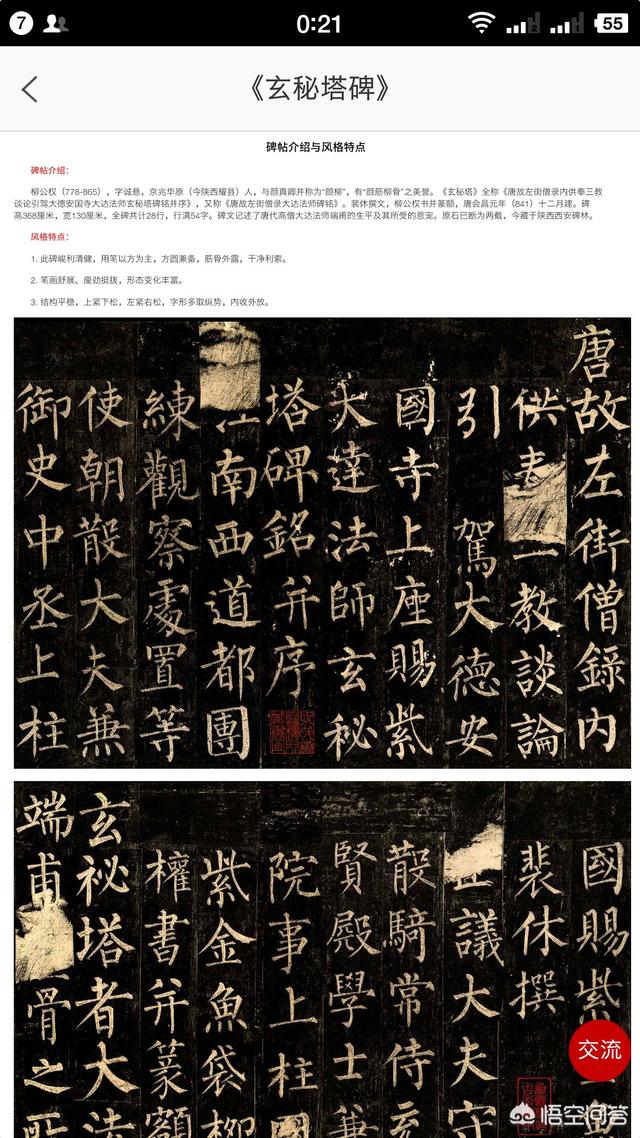 7
0:21
55
《玄秘塔碑》
碑帖介绍与风格特点
碑帖介绍：
柳公权（778-865），字诚悬，京兆华原（今陕西耀县）人，与颜真卿并称为“颜柳”，有“颜筋柳骨”之美誉。《玄秘塔》全称《唐故左街僧录内供奉三教
谈论引驾大德安国寺大达法师玄秘塔碑铭并序》，又称《唐故左街僧录大达法师碑铭》。裴休撰文，柳公权书并篆额，唐会昌元年（841）十二月建。碑
高368厘米，宽130厘米，全碑共计28行，行满54字。碑文记述了唐代高僧大达法师端甫的生平及其所受的恩宠。原石已断为两截，今藏于陕西西安碑林。
风格特点：
1. 此碑峻利清健，用笔以方为主，方圆兼备，筋骨外露，干净利索。
2. 笔画舒展、廋劲挺拔，形态变化丰富。
3. 结构平稳，上紧下松，左紧右松，字形多取纵势，内收外放。
唐故左街僧錄内
供
教談論
引駕大德安
國寺上座賜紫
大達法師玄秘
塔碑銘并序
南西道都團
練觀察處置等
使朝散大夫兼
御史中丞上柱
國賜紫
裴休撰
議大夫守
散騎常侍
賢殿學士
院事上柱國
紫金魚袋柳
權書并篆額
玄祕塔者大法
端甫
骨之所
交流
悟空问答